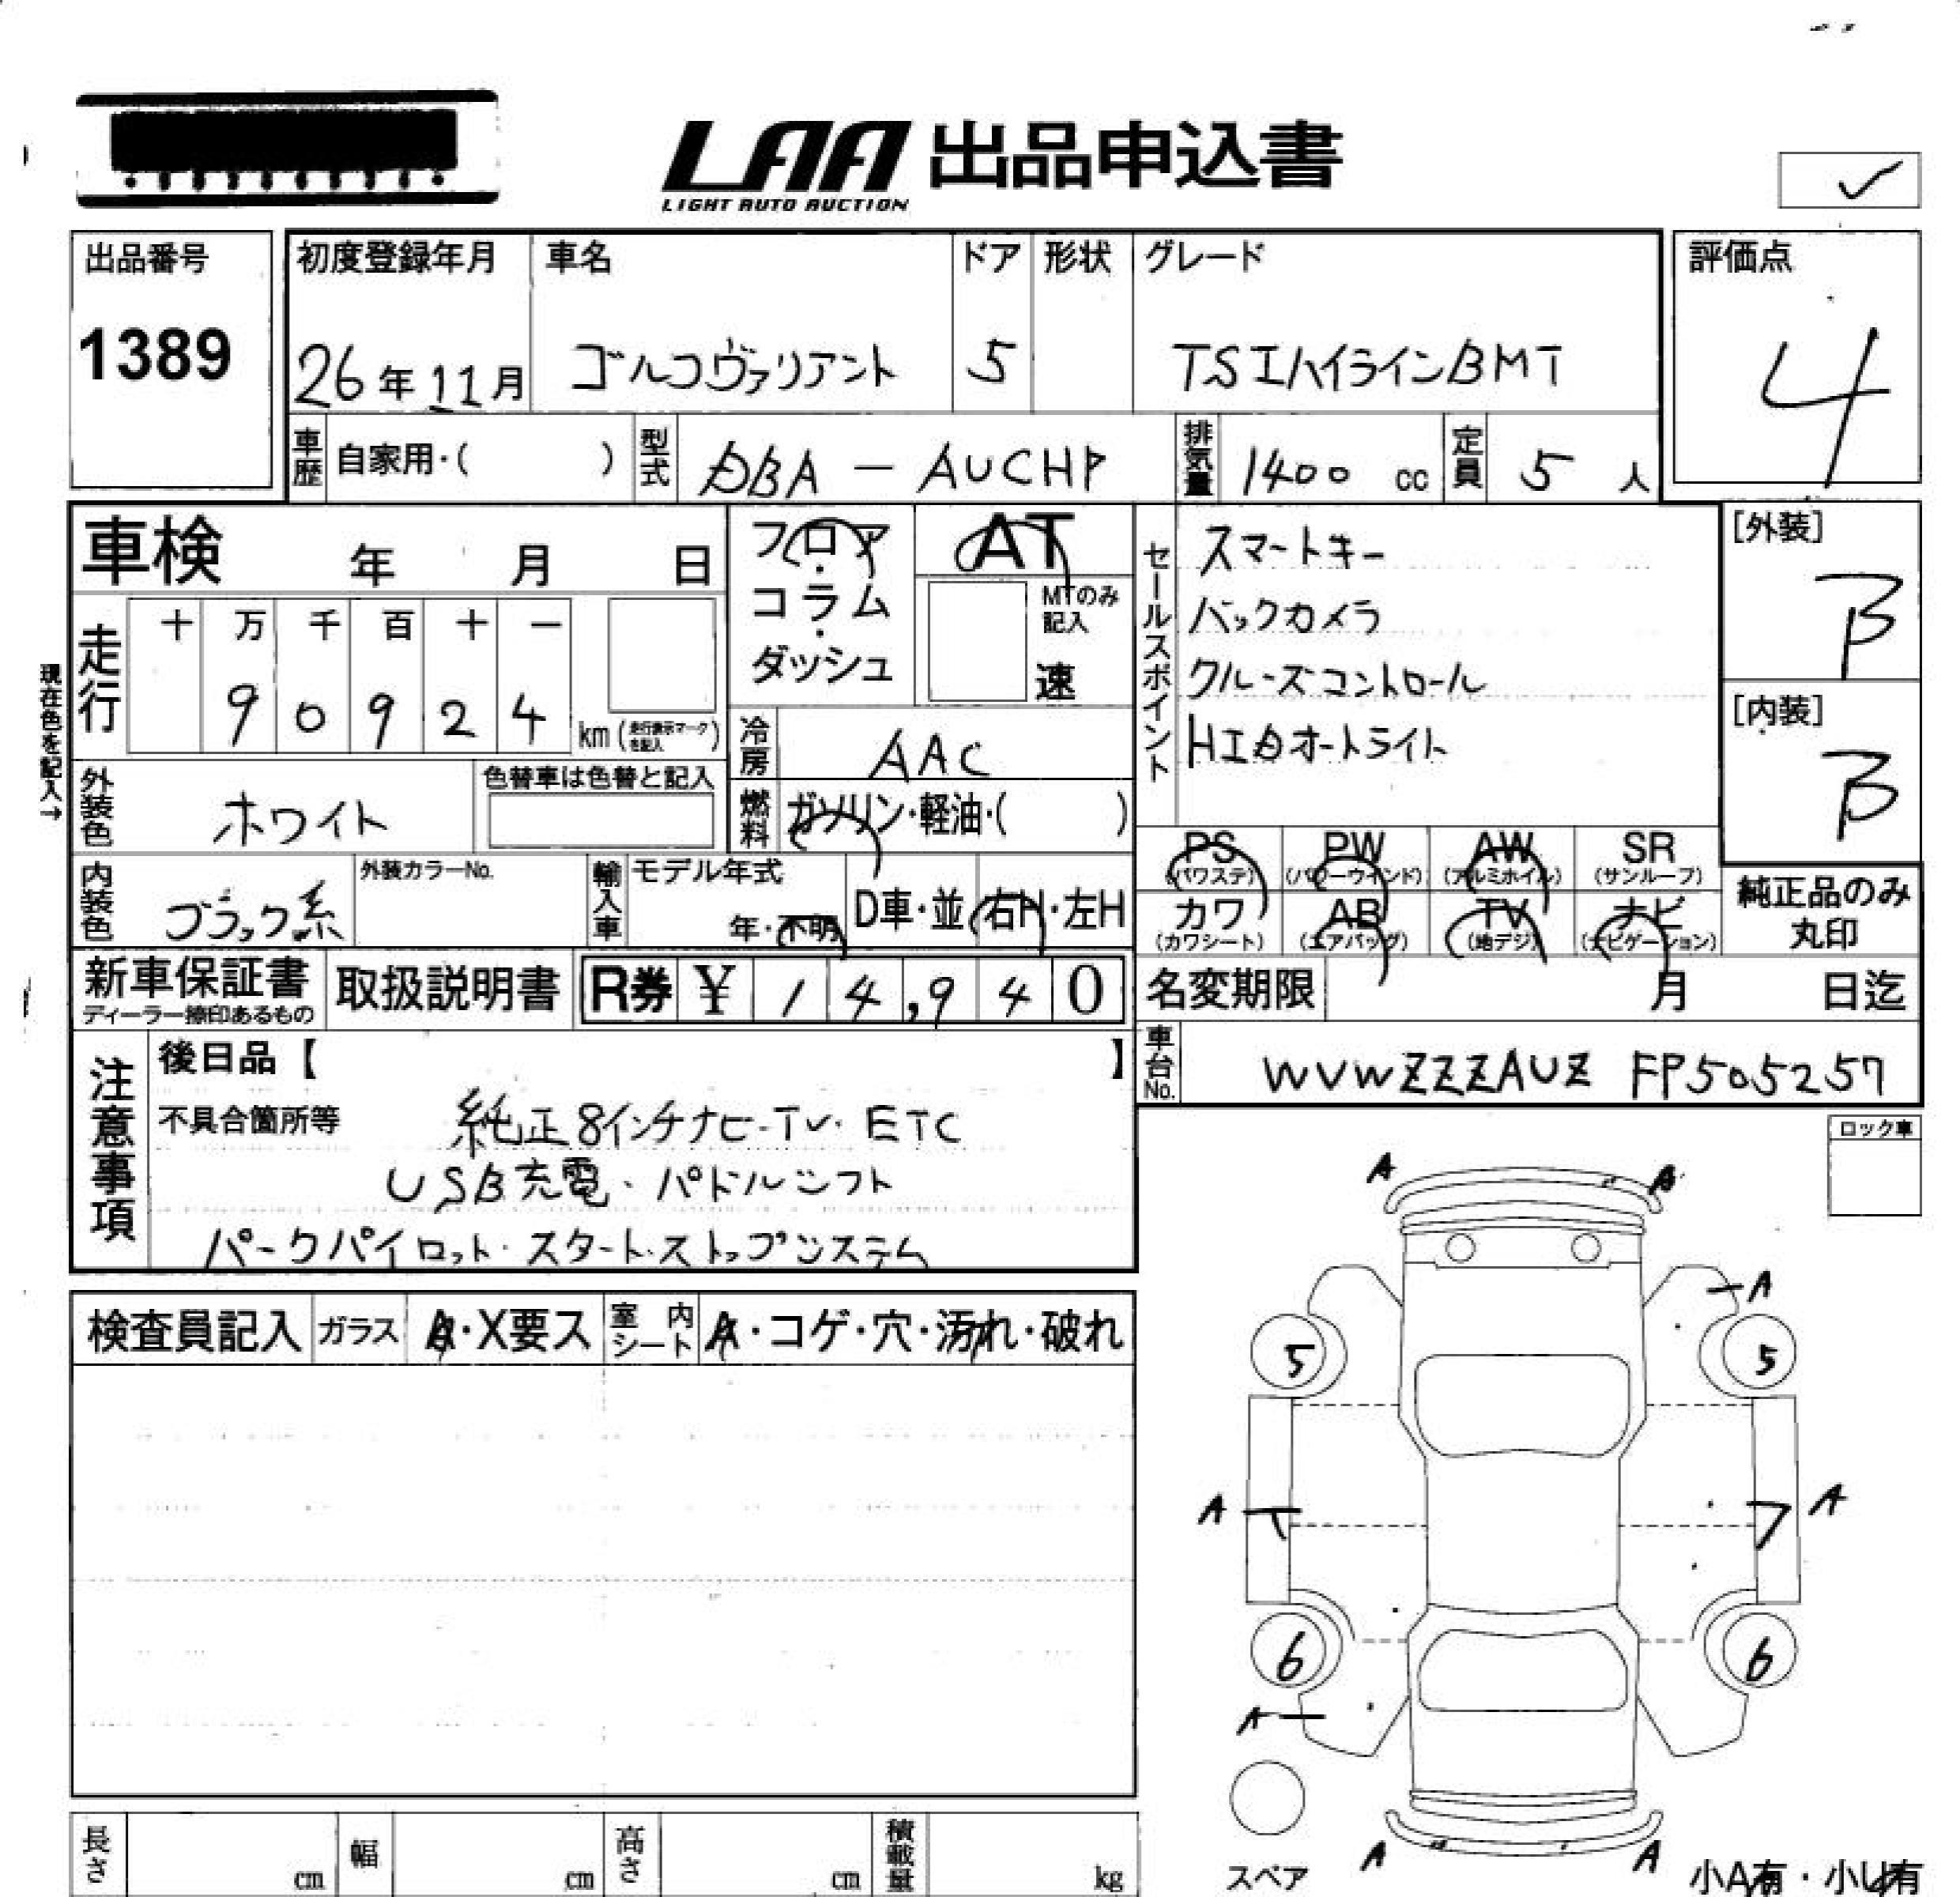 LAA 出品申込書
LIGHT AUTO AUCTION
出品番号
1389
初度登録年月
26年11月
車名
ゴルフヴァリアント
ドア
5
形状
グレード
TSIハイラインBMT
評価点
4
車歴
自家用・( )
型式
DBA - AUCHP
排気量
1400 cc
定員
5 人
車検 年 月 日
フロア・コラム・ダッシュ
AT
MTのみ記入
速
セールスポイント
スマートキー
バックカメラ
クルーズコントロール
HIDオートライト
[外装]
B
[内装]
B
現在色を記入→
走行
十 万 千 百 十 一
9 0 9 2 4 km (走行表示マークを記入)
冷房
AAC
燃料
ガソリン・軽油・( )
外装色
ホワイト
色替車は色替と記入
内装色
ブラック系
外装カラーNo.
輸入車
モデル年式
年・不明
D車・並
右H・左H
PS (パワステ)
PW (パワーウインド)
AW (アルミホイル)
SR (サンルーフ)
カワ (カワシート)
AB (エアバッグ)
TV (地デジ)
ナビ (ナビゲーション)
純正品のみ丸印
新車保証書
ディーラー捺印あるもの
取扱説明書
R券 ¥ 14,940
名変期限 月 日迄
車台No.
WVWZZZAUZ FP505257
注意事項
後日品【 】
不具合箇所等
純正8インチナビ・TV・ETC
USB充電・パドルシフト
パークパイロット・スタート・ストップシステム
ロック車
A A
A
5 5
A A
6 6
A
A A
スペア
小A有・小U有
検査員記入
ガラス
A・X要ス
室内シート
A・コゲ・穴・汚れ・破れ
長さ cm
幅 cm
高さ cm
積載量 kg